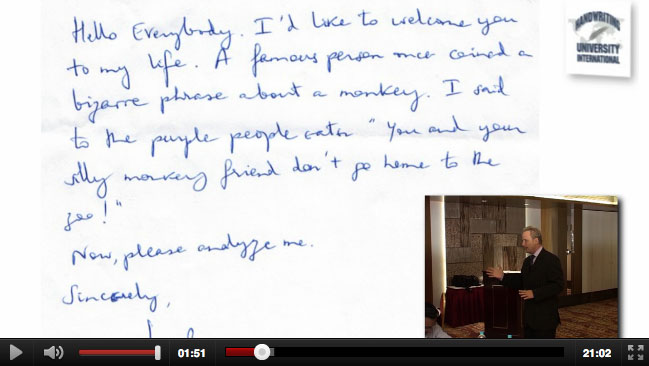 Hello Everybody. I'd like to welcome you
to my life. A famous person once coined a
bizarre phrase about a monkey. I said
to the purple people eater "You and your
silly monkey friend don't go home to the
zoo!"
Now, please analyze me.
Sincerely,
HANDWRITING
UNIVERSITY
INTERNATIONAL
01:51
21:02